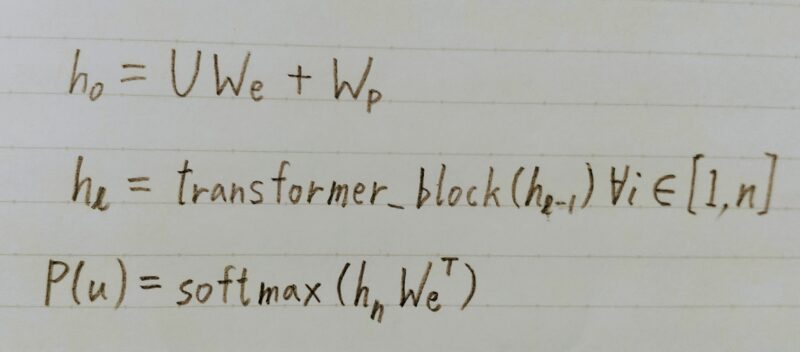 h₀ = UWₑ + Wₚ
hₗ = transformer_block(hₗ₋₁) ∀i ∈ [1,n]
P(u) = softmax(hₙWₑᵀ)